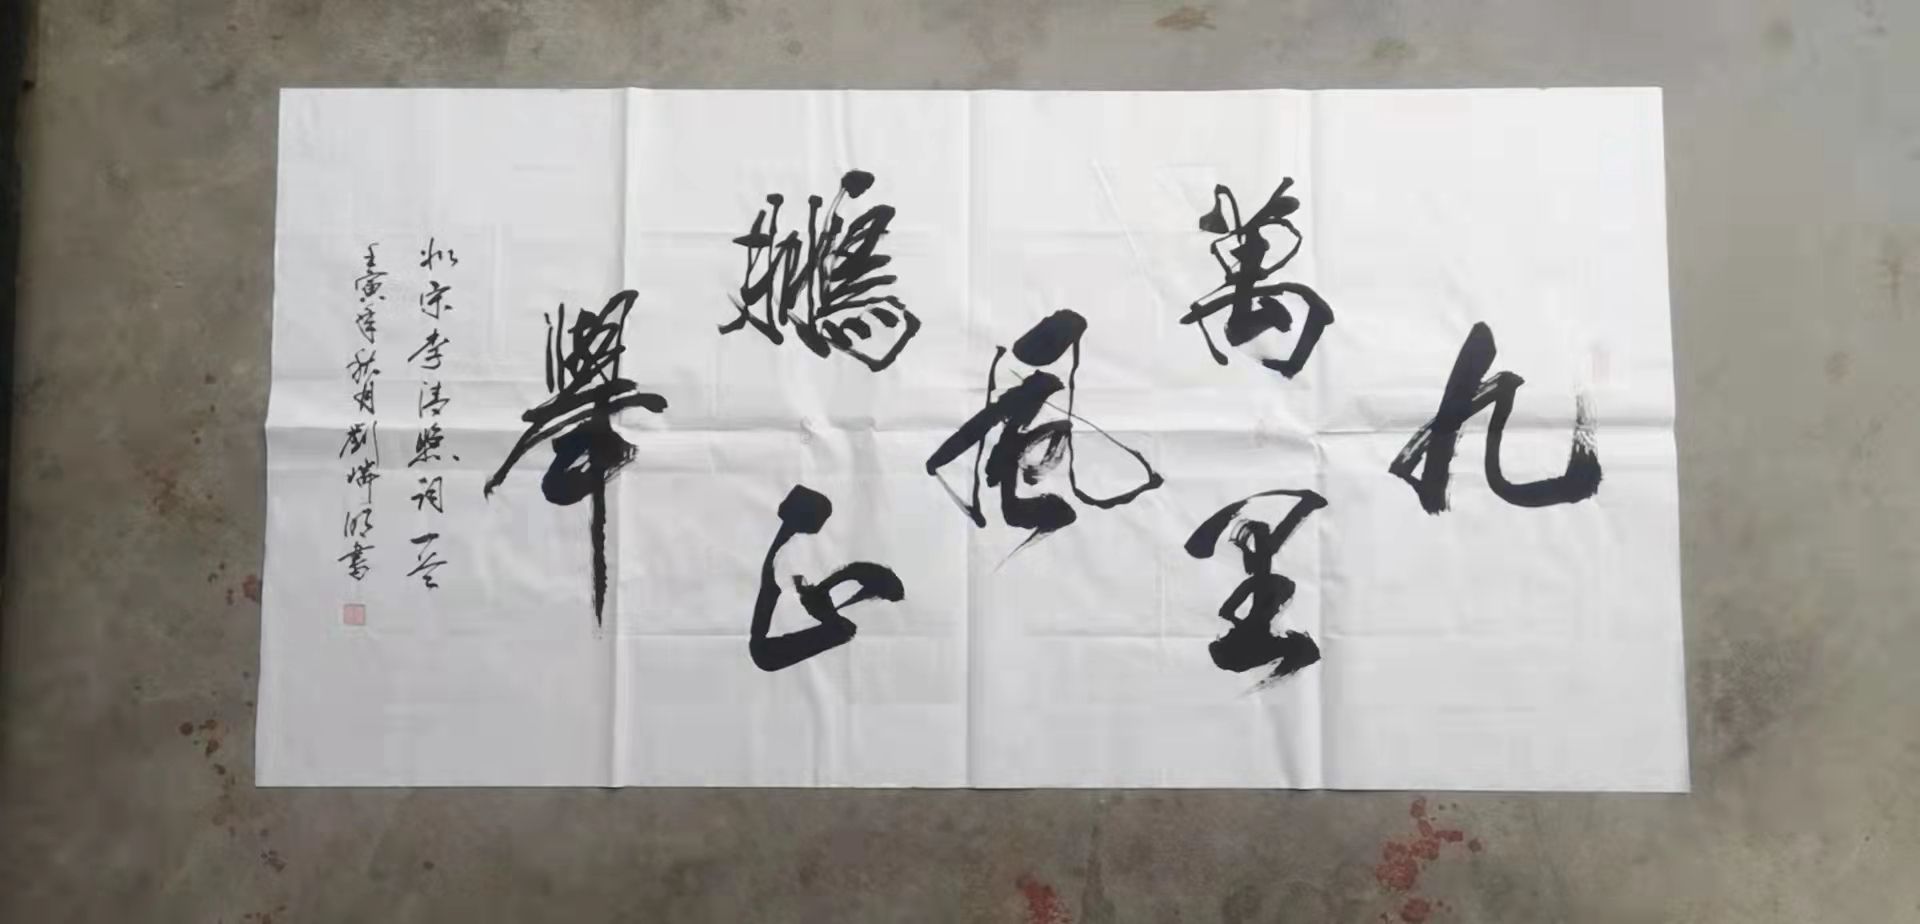 九
萬里
風
鵬正
舉
北宋李清照詞一
壬寅年秋月劉明書